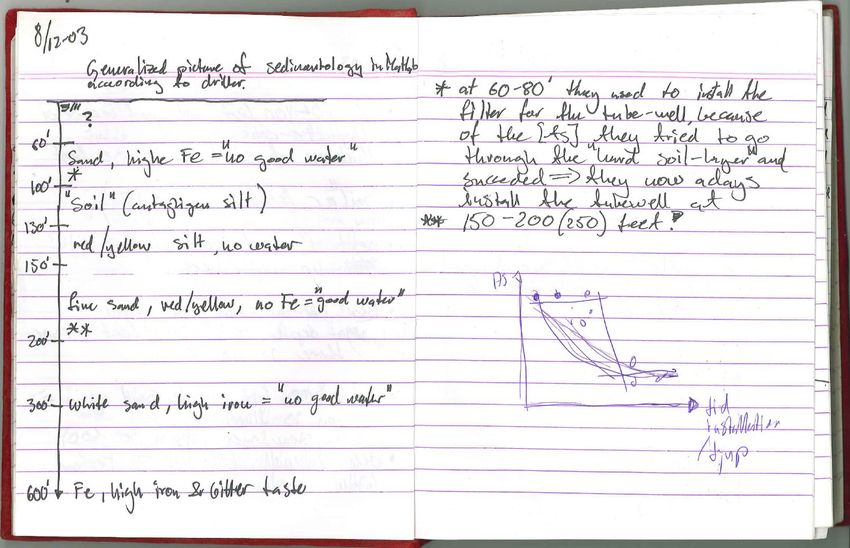 8/12-03
Generalized picture of sedimentology in Matlab
according to driller.
?
60'
Sand, highe Fe = "no good water"
*
100'
"Soil" (antagligen silt)
130'
red/yellow silt, no water
150'
fine sand, red/yellow, no Fe = "good water"
**
200'
300' White sand, high iron = "no good water"
600' Fe, high iron & bitter taste
* at 60-80' they used to install the
filter for the tube-well, because
of the [As] they tried to go
through the "hard soil-layer" and
succeeded => they now adays
install the tubewell at
** 150-200 (250) feet?
As
tid
installation
/djup